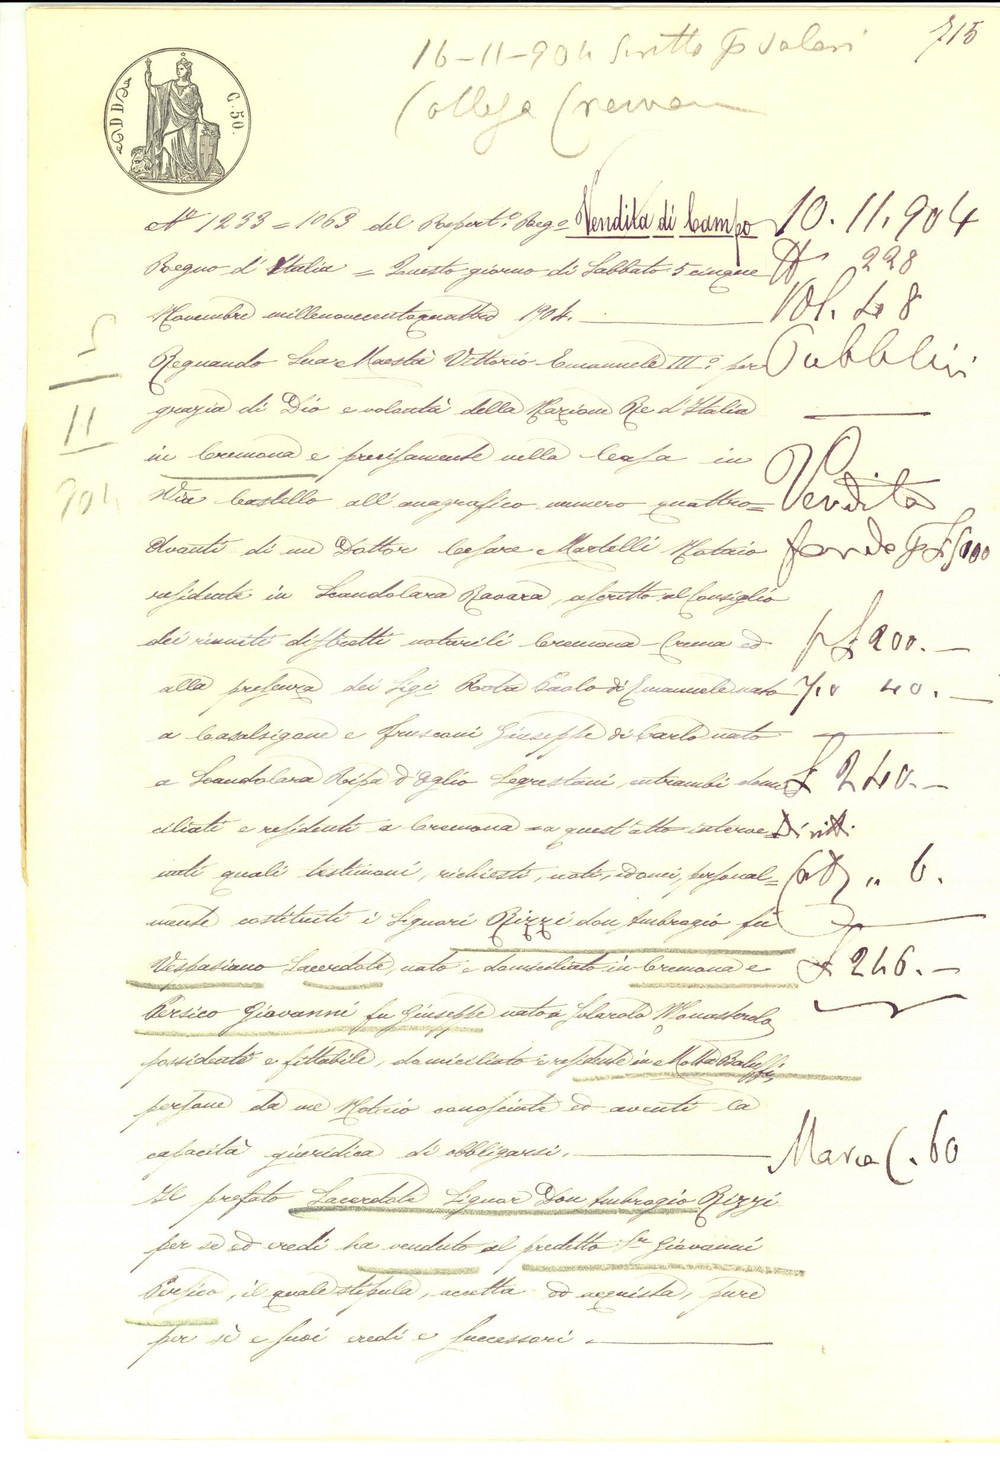 715
16-11-904 Scritto
Collega Cremona
DD
C. 50.
N° 1233 = 1063 del Repert.° Reg° Vendita di Campo
Regno d'Italia = Questo giorno di Sabbato 5 cinque
Novembre millenovecentoquattro 1904.
Regnando Sua Maestà Vittorio Emanuele III° per
grazia di Dio e volontà della Nazione Re d'Italia
in Cremona e precisamente nella Casa in
Via Castello all'anagrafico numero quattro=
Avanti di me Dottor Cesare Martelli Notaio
residente in Scandolara Ravara, ascritto al Consiglio
dei riuniti distretti notarili Cremona-Crema ed
alla presenza dei Sigi Rota Paolo di Emanuele nato
a Casalsigone e Frusconi Giuseppe di Carlo nato
a Scandolara Ripa d'Oglio Segrestani, entrambi domi
ciliati e residenti a Cremona a quest'atto interve=
nuti quali testimoni, richiesti, noti, idonei, personal=
mente costituiti i Signori Rizzi don Ambrogio fu
Vespasiano Sacerdote, nato e domiciliato in Cremona e
Persico Giovanni fu Giuseppe nato a Solarolo Monasterolo
possidente e fittabile, domiciliato e residente in Motta Baluffi,
persone da me Notaio conosciute ed aventi la
capacità giuridica di obbligarsi.
Il prefato Sacerdote Signor Don Ambrogio Rizzi
per sè ed eredi ha venduto al predetto Sr Giovanni
Persico, il quale stipula, accetta ed acquista, pure
per sè e suoi eredi e successori.
5
11
904
10.11.904
N° 228
Vol. 48
Pubblici
Vendita
fondo
£ 200.-
40.-
£ 240.-
Diritti
6.
£ 246.-
Marca C. 60